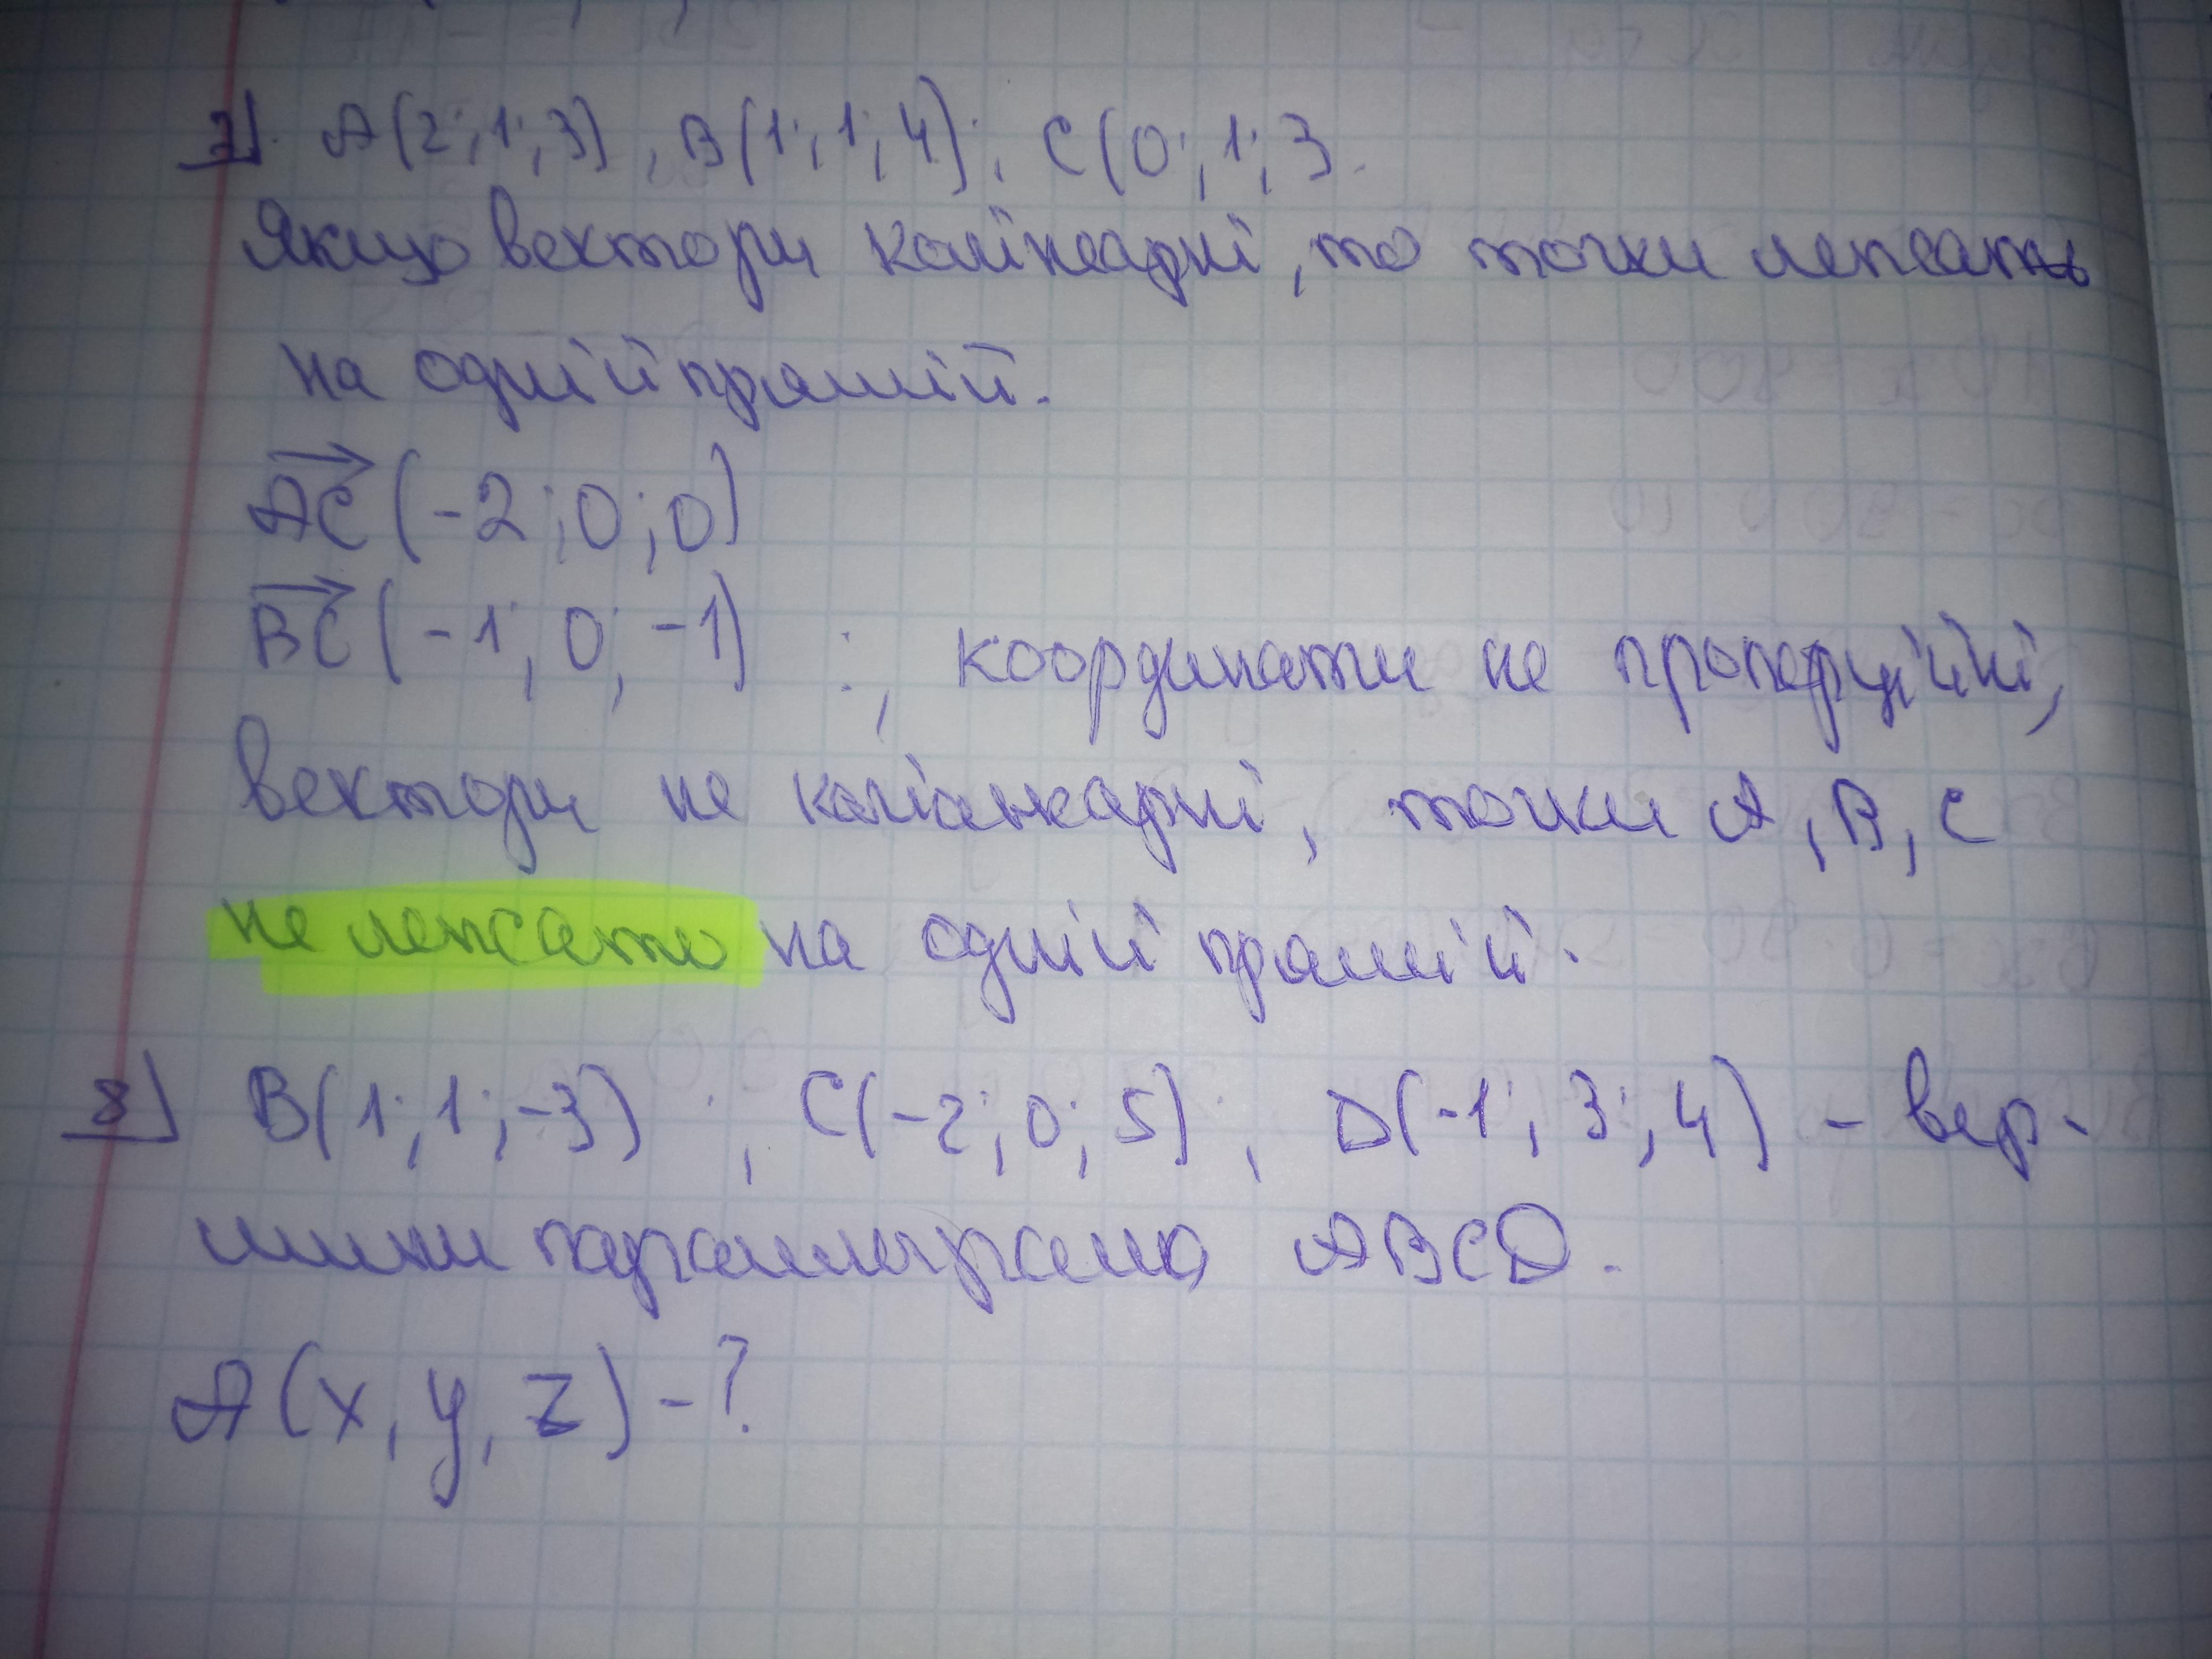 7). A(2;1;3), B(1;1;4); C(0;1;3.
Якщо вектори колінеарні, то точки лежать
на одній прямій.
AC (-2;0;0)
BC (-1;0;-1) :, координати не пропорційні,
вектори не колінеарні, точки A, B, C
не лежать на одній прямій.
8) B(1;1;-3) ; C(-2;0;5); D(-1;3;4) - вер-
шини паралелограма ABCD.
A(x,y,z)-?